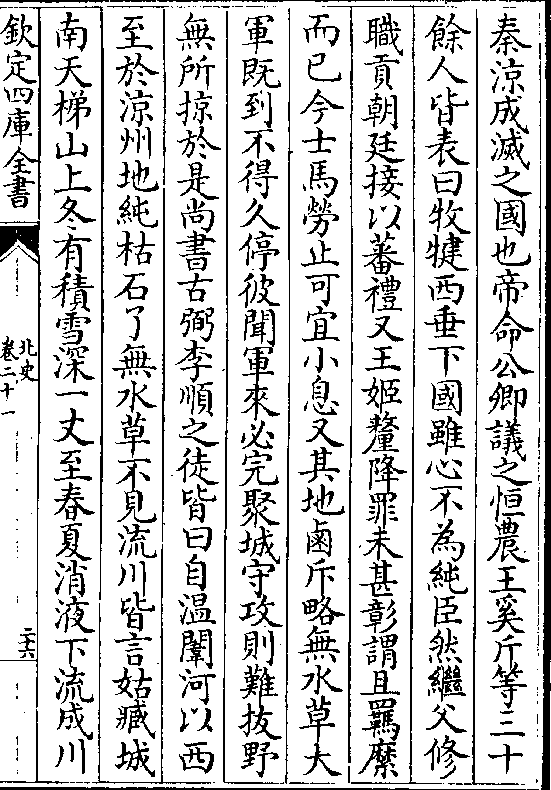 秦涼成滅之國也帝命公卿議之恒農王奚斤等三十
餘人皆表曰牧犍西垂下國雖心不為純臣然繼父修
職貢朝廷接以蕃禮又王姬釐降罪未甚彰謂且羈縻
而已今士馬勞止可宜小息又其地鹵斥略無水草大
軍既到不得久停彼聞軍來必完聚城守攻則難拔野
無所掠於是尚書古弼李順之徒皆曰自溫闈河以西
至於涼州地純枯石了無水草不見流川皆言姑臧城
南天梯山上冬有積雪深一丈至春夏消液下流成川
欽定四庫全書
北史
卷二十一
二十六